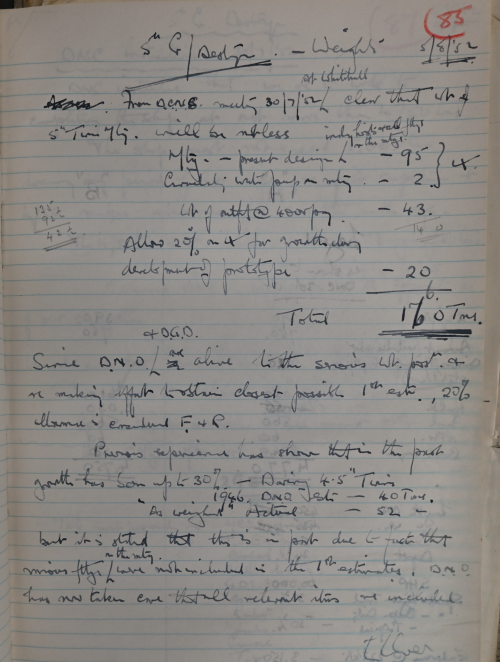 85
5" G/Design. - Weights 5/8/'52
at Whitehall
From ACNS. meeting 30/7/'52 clear that wt of
5" Twin Mtg. will be not less
in the mtg.
Mtg. - present design - 95
Circulating water pump on mtg. - 2
Wt of outfit @ 400 rpg - 43.
140
Allow 20% on x for growth during
development of prototype - 20
Total 160 Tns.
& D.G.D.
Since D.N.O. are alive to the serious wt. post. &
are making effort to obtain closest possible 1st est., 20%
allowance is considered F. & R.
Previous experience has shown that in the past
growth has been up to 30% - During 4.5" Twin
1946. DNO Estn - 40 Tns.
"As weighed" Actual - 52 "
but it is stated that this is in part due to fact that
in the mtg.
various ftgs were not included in the 1st estimates. D.N.O
has now taken care that all relevant items are included.